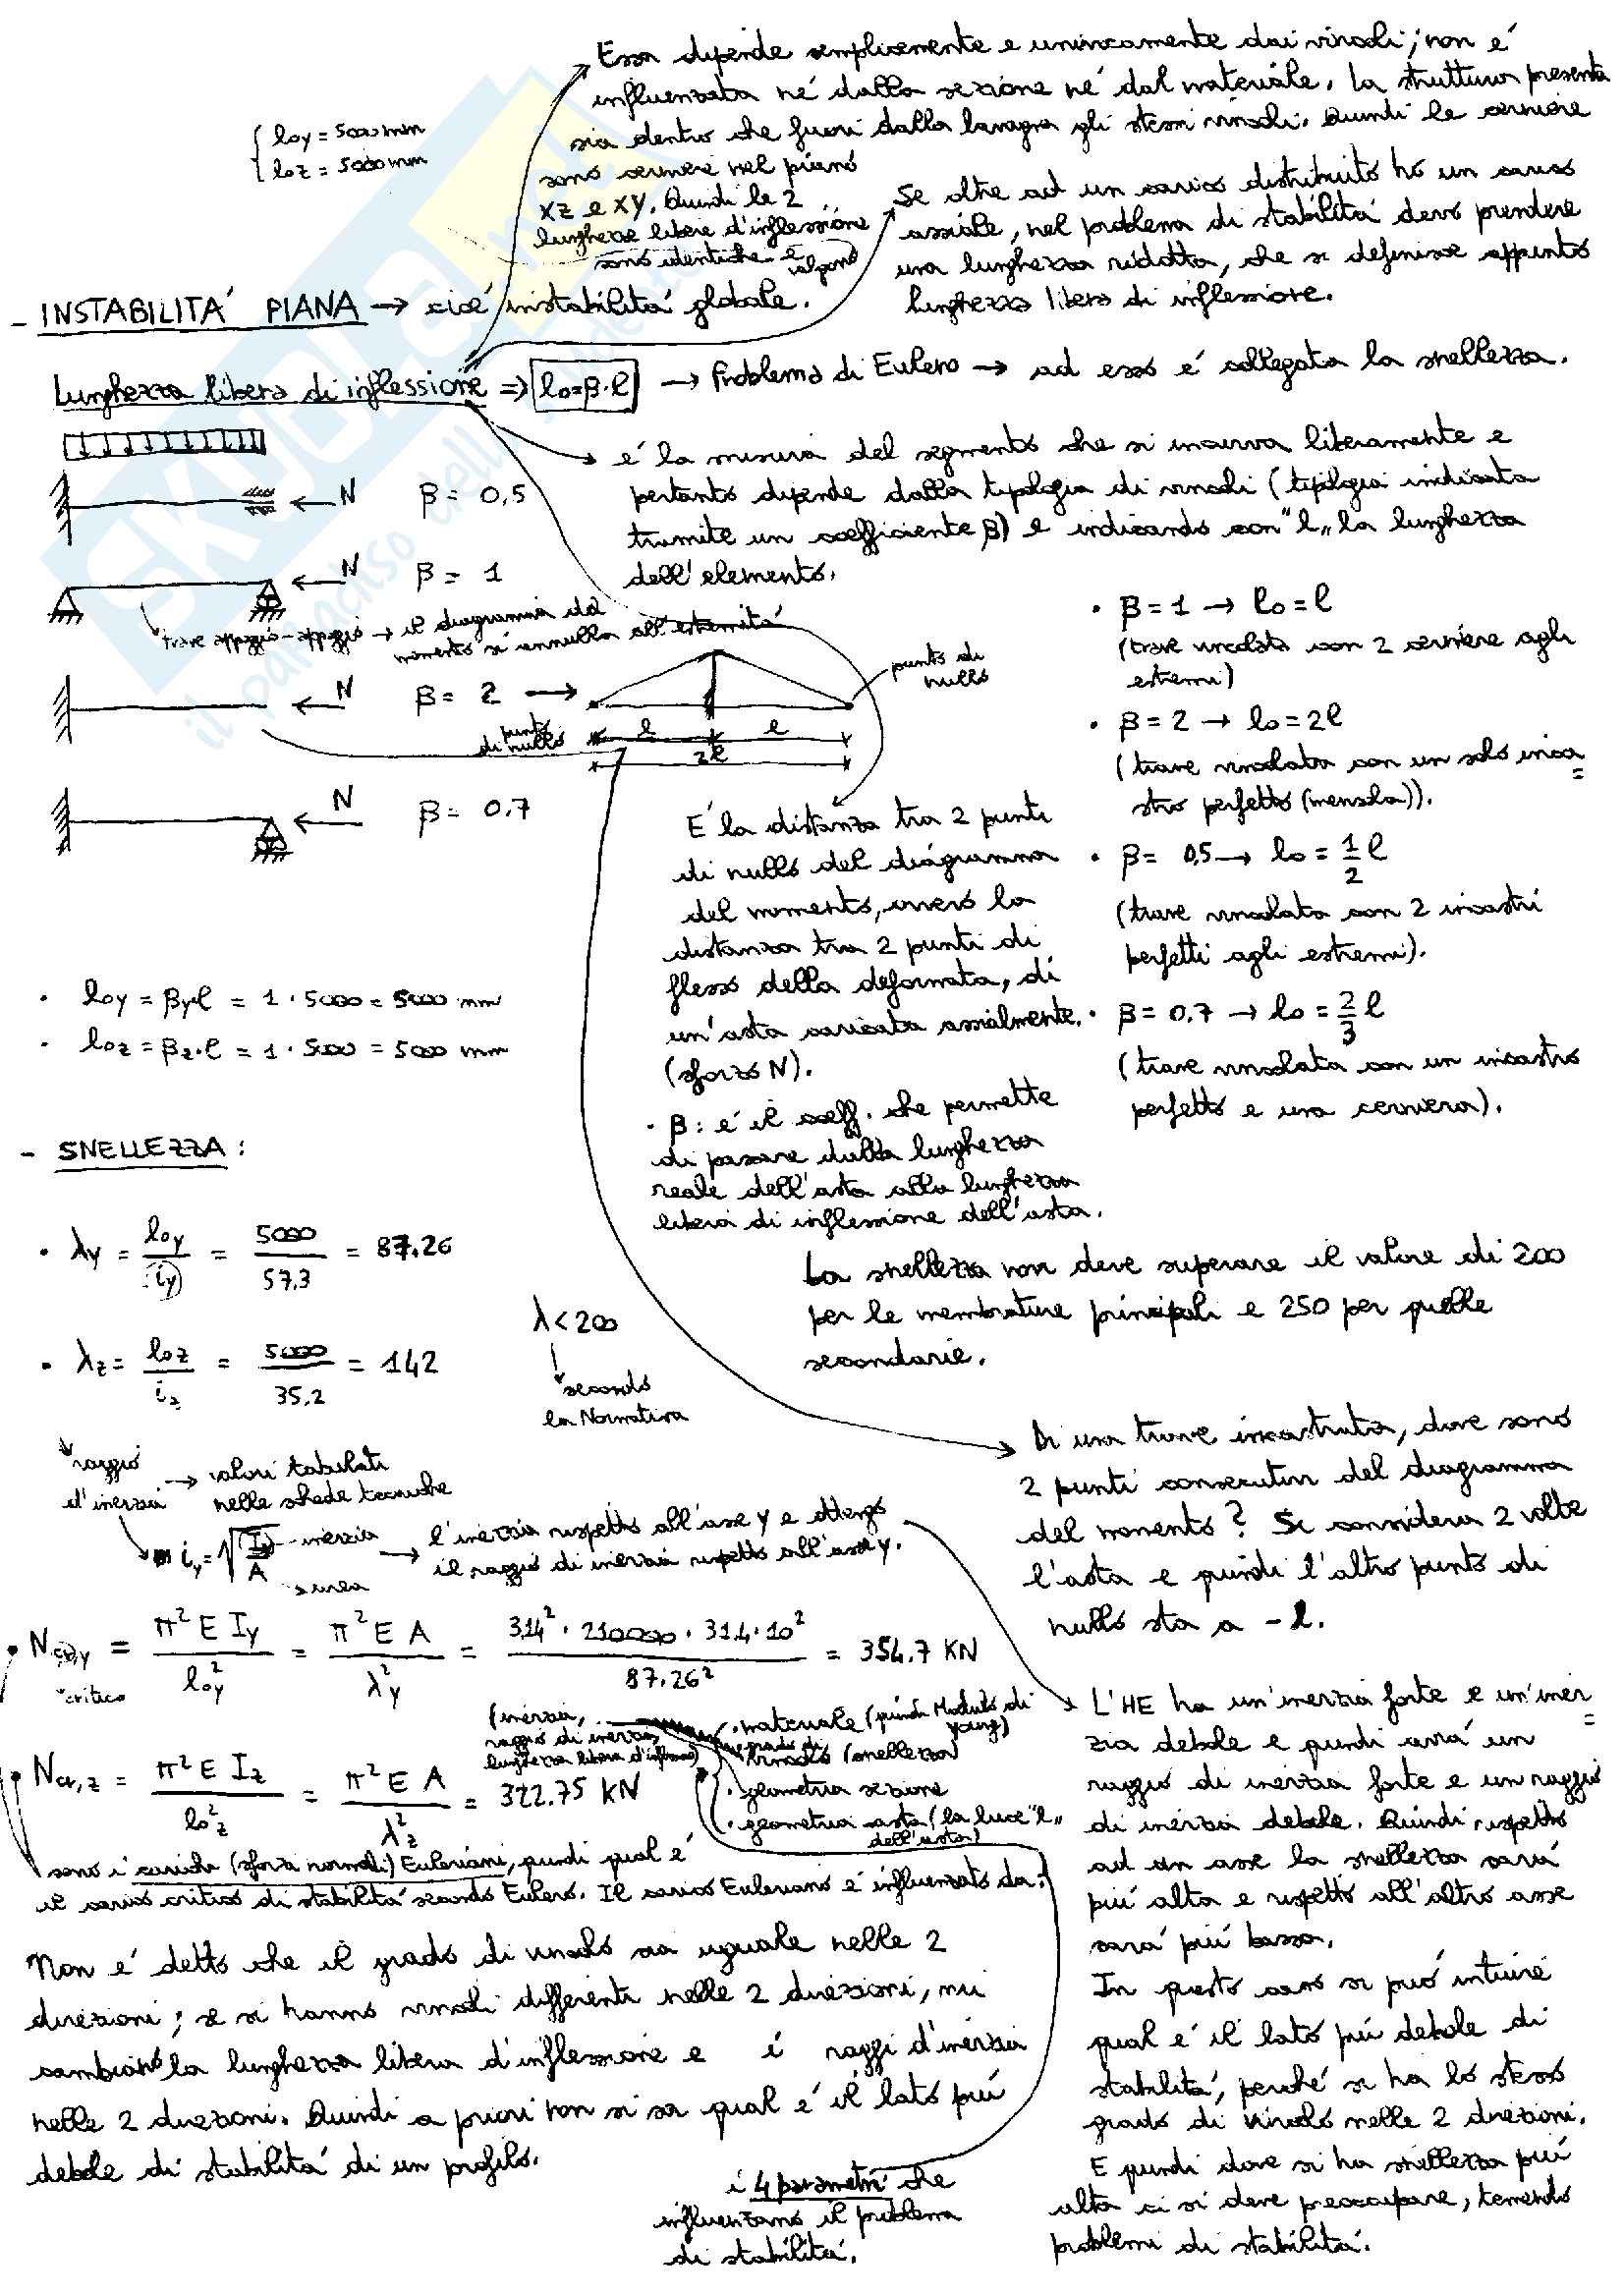 Essa dipende semplicemente e univocamente dai vincoli; non é
influenzata né dalla sezione né dal materiale. La struttura presenta
sia dentro che fuori dalla lavagna gli stessi vincoli. Quindi le cerniere
sono cerniere nel piano
XZ e XY. Quindi le 2
lunghezze libere d'inflessione
sono identiche e valgono
{ loy = 5000 mm
{ loz = 5000 mm
Se oltre ad un carico distribuito ho un carico
assiale, nel problema di stabilità devo prendere
una lunghezza ridotta, che si definisce appunto
lunghezza libera di inflessione.
- INSTABILITA' PIANA → cioé instabilità globale.
Lunghezza libera di inflessione ⇒ lo=β·l → Problema di Eulero → ad esso é collegata la snellezza.
é la misura del segmento che si incurva liberamente e
pertanto dipende dalla tipologia di vincoli (tipologia indicata
tramite un coefficiente β) e indicando con "l" la lunghezza
dell'elemento.
N β = 0,5
N β = 1
trave appoggio-appoggio → il diagramma del
momento si annulla all'estremità
N β = 2 →
punto di nullo
punto di nullo
l l
2l
N β = 0.7
• β = 1 → lo = l
(trave vincolata con 2 cerniere agli
estremi)
• β = 2 → lo = 2l
(trave vincolata con un solo inca
stro perfetto (mensola)).
• β = 0,5 → lo = 1/2 l
(trave vincolata con 2 incastri
perfetti agli estremi).
• β = 0.7 → lo = 2/3 l
(trave vincolata con un incastro
perfetto e una cerniera).
É la distanza tra 2 punti
di nullo del diagramma
del momento, ovvero la
distanza tra 2 punti di
flesso della deformata, di
un'asta caricata assialmente.
(sforzo N).
• β: é il coeff. che permette
di passare dalla lunghezza
reale dell'asta alla lunghezza
libera di inflessione dell'asta.
• loy = βy·l = 1 · 5000 = 5000 mm
• loz = βz·l = 1 · 5000 = 5000 mm
- SNELLEZZA:
• λy = loy/iy = 5000/57,3 = 87.26
• λz = loz/iz = 5000/35,2 = 142
λ < 200
secondo
la Normativa
La snellezza non deve superare il valore di 200
per le membrature principali e 250 per quelle
secondarie.
raggio
d'inerzia → valori tabulati
nelle schede tecniche
iy = √Iy/A inerzia
area
→ l'inerzia rispetto all'asse y e ottengo
il raggio di inerzia rispetto all'asse y.
Di una trave incastrata, dove sono
2 punti consecutivi del diagramma
del momento? Si considera 2 volte
l'asta e quindi l'altro punto di
nullo sta a -l.
• Ncr,y = π² E Iy / loy² = π² E A / λy² = 3,14² · 210000 · 31.4 · 10² / 87.26² = 354.7 KN
critico
(inerzia,
raggio di inerzia,
lunghezza libera d'inflessione)
• materiale (quindi Modulo di
Young)
grado di
vincolo (snellezza)
• geometria sezione
• geometria asta (la luce "l"
dell'asta)
• Ncr,z = π² E Iz / loz² = π² E A / λz² = 322.75 KN
sono i carichi (sforzi normali) Euleriani, quindi qual é
il carico critico di stabilità secondo Eulero. Il carico Euleriano é influenzato da:
Non é detto che il grado di vincolo sia uguale nelle 2
direzioni; se si hanno vincoli differenti nelle 2 direzioni, mi
cambiano la lunghezza libera d'inflessione e i raggi d'inerzia
nelle 2 direzioni. Quindi a priori non si sa qual é il lato piú
debole di stabilità di un profilo.
i 4 parametri che
influenzano il problema
di stabilità.
L'HE ha un'inerzia forte e un'iner
zia debole e quindi avrá un
raggio di inerzia forte e un raggio
di inerzia debole. Quindi rispetto
ad un asse la snellezza sará
piú alta e rispetto all'altro asse
sará piú bassa.
In questo caso si puó intuire
qual é il lato piú debole di
stabilità, perché si ha lo stesso
grado di vincolo nelle 2 direzioni.
E quindi dove si ha snellezza piú
alta ci si deve preoccupare, temendo
problemi di stabilità.